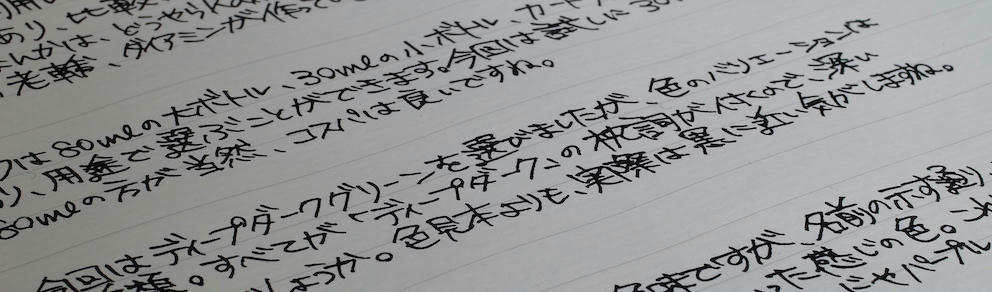 あり、比較
んかは、どうやら
老舗、ダイアミンが作って
は80mlの大ボトル、30mlの小ボトル、カート
り、用途で選ぶことができます。今回は試しに30
80mlの方が当然、コスパは良いですね。
今回はディープダークグリーンを選びましたが、色のバリエーションは
種。すべてが「ディープダーク」の枕詞が付くので、深い
しょうか。色見本よりも、実際は黒に近い気がしますね。
色味ですが、名前の示す通り、
った感じの色。
にやパープル